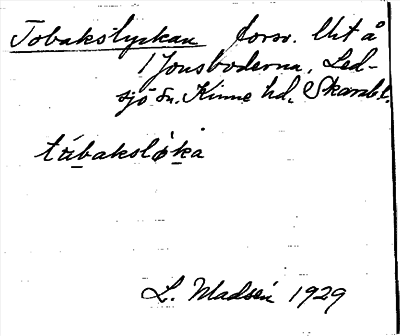 Tobakslyckan försv. litå
1 Jonsboderna, Led-
sjö sn. Kinne hd. Skarab.l.
tübaksløka
L. Madsén 1929